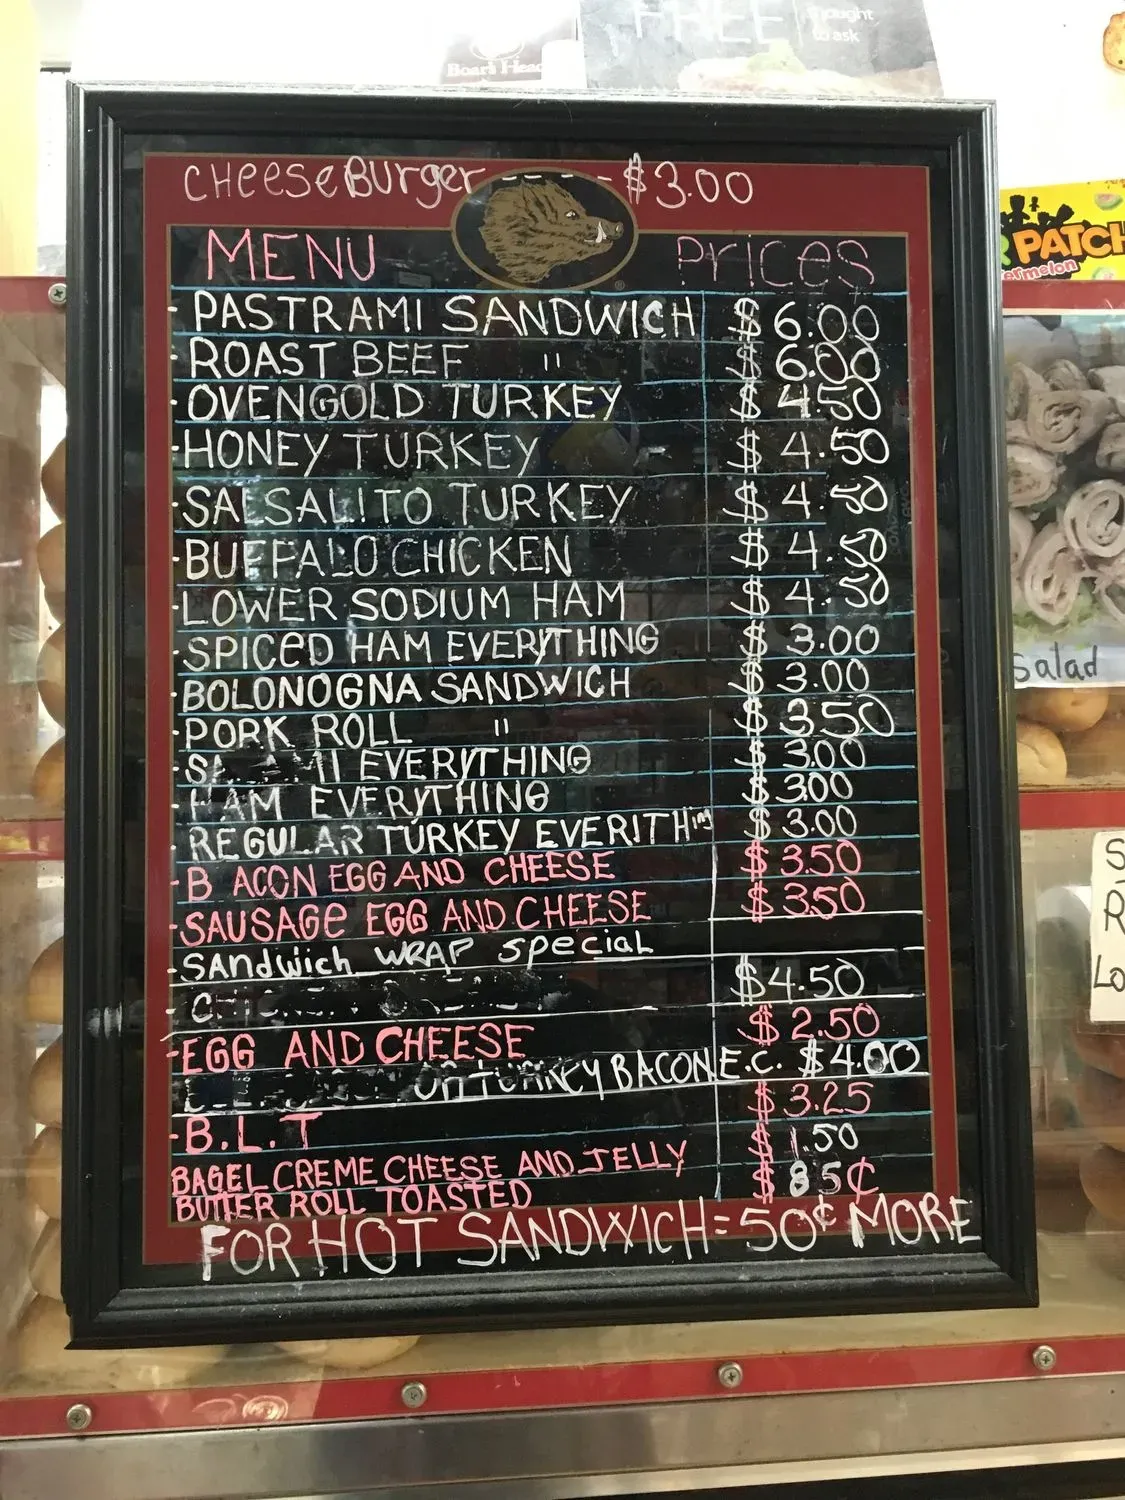 FREE
thought
to ask
Boar's Head
CHeese Burger ---- $3.00
MENU PrICeS
- PASTRAMI SANDWICH $ 6.00
- ROAST BEEF " $ 6.00
- OVENGOLD TURKEY $ 4.50
- HONEY TURKEY $ 4.50
- SALSALITO TURKEY $ 4.50
- BUFFALO CHICKEN $ 4.50
- LOWER SODIUM HAM $ 4.50
- SPICED HAM EVERYTHING $ 3.00
- BOLONOGNA SANDWICH $ 3.00
- PORK ROLL " $ 3.50
- EVERYTHING $ 3.00
- HAM EVERYTHING $ 300
- REGULAR TURKEY EVERITHing $ 3.00
- B ACON EGG AND CHEESE $ 3.50
- SAUSAGe EGG AND CHEESE $ 3.50
- SANdwich WRAP special
$4.50
- EGG AND CHEESE $ 2.50
BACON E.C. $4.00
- B.L.T $ 3.25
BAGEL CREME CHEESE AND JELLY $ 1.50
BUTTER ROLL TOASTED $ 85¢
FOR HOT SANDWICH = 50¢ MORE
PATCH
Salad